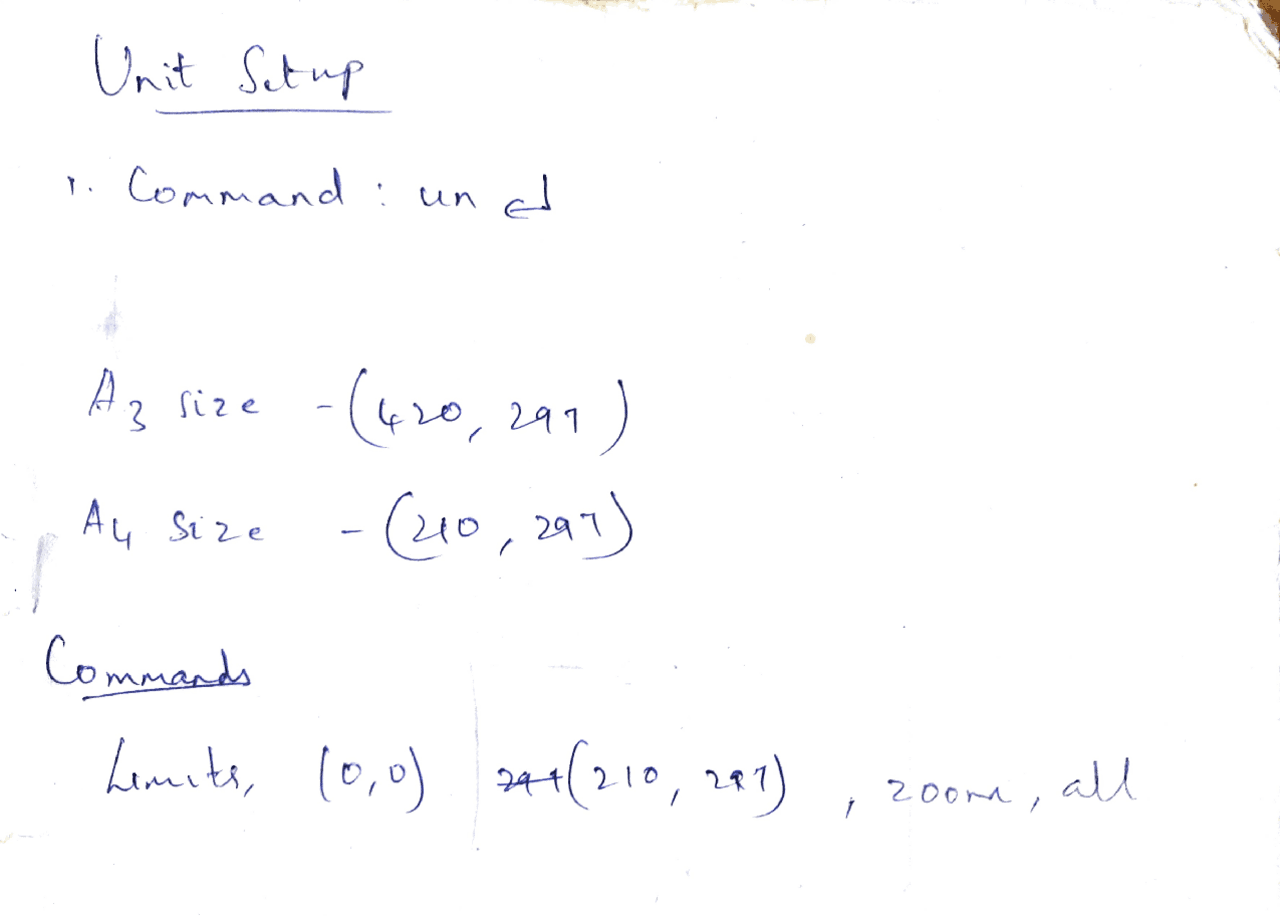 Unit Setup
1. Command : un ↵
A3 size - (420, 297)
A4 size - (210, 297)
Commands
Limits, (0,0) (210, 297) , zoom, all